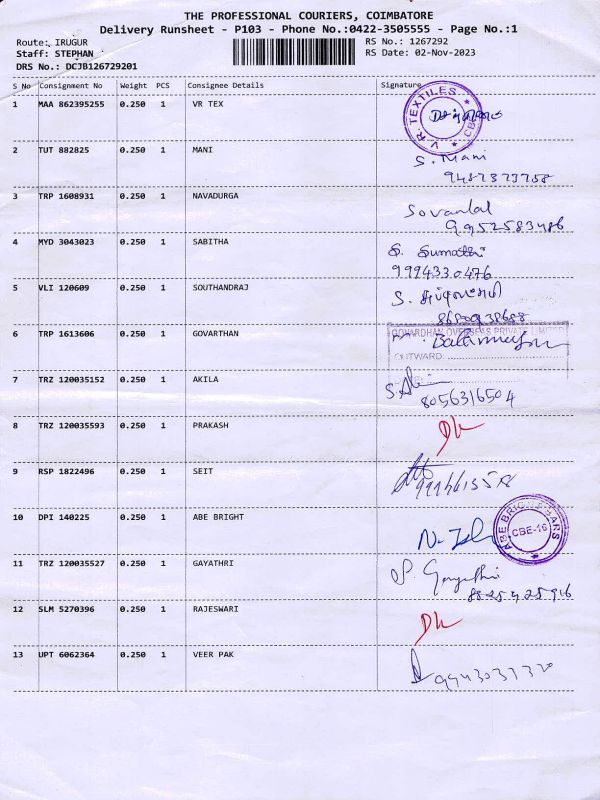 THE PROFESSIONAL COURIERS, COIMBATORE
Delivery Runsheet - P103 - Phone No.:0422-3505555 - Page No.:1
Route: IRUGUR RS No.: 1267292
Staff: STEPHAN RS Date: 02-Nov-2023
DRS No.: DCJB126729201
S No Consignment No Weight PCS Consignee Details Signature
1 MAA 862395255 0.250 1 VR TEX
V.R. TEXTILES CBE
2 TUT 882825 0.250 1 MANI
S. Mani
9487373758
3 TRP 1608931 0.250 1 NAVADURGA
Sovanlal
9952583486
4 MYD 3043023 0.250 1 SABITHA
S. Sumathi
9994330476
5 VLI 120609 0.250 1 SOUTHANDRAJ
S.
6 TRP 1613606 0.250 1 GOVARTHAN
GOVARDHAN OVERSEAS PRIVATE LIMITED
OUTWARD:
7 TRZ 120035152 0.250 1 AKILA
8056316504
8 TRZ 120035593 0.250 1 PRAKASH
9 RSP 1822496 0.250 1 SEIT
10 DPI 140225 0.250 1 ABE BRIGHT
ABE BRIGHT BARS CBE-16
11 TRZ 120035527 0.250 1 GAYATHRI
P. Gayathri
8825425916
12 SLM 5270396 0.250 1 RAJESWARI
13 UPT 6062364 0.250 1 VEER PAK